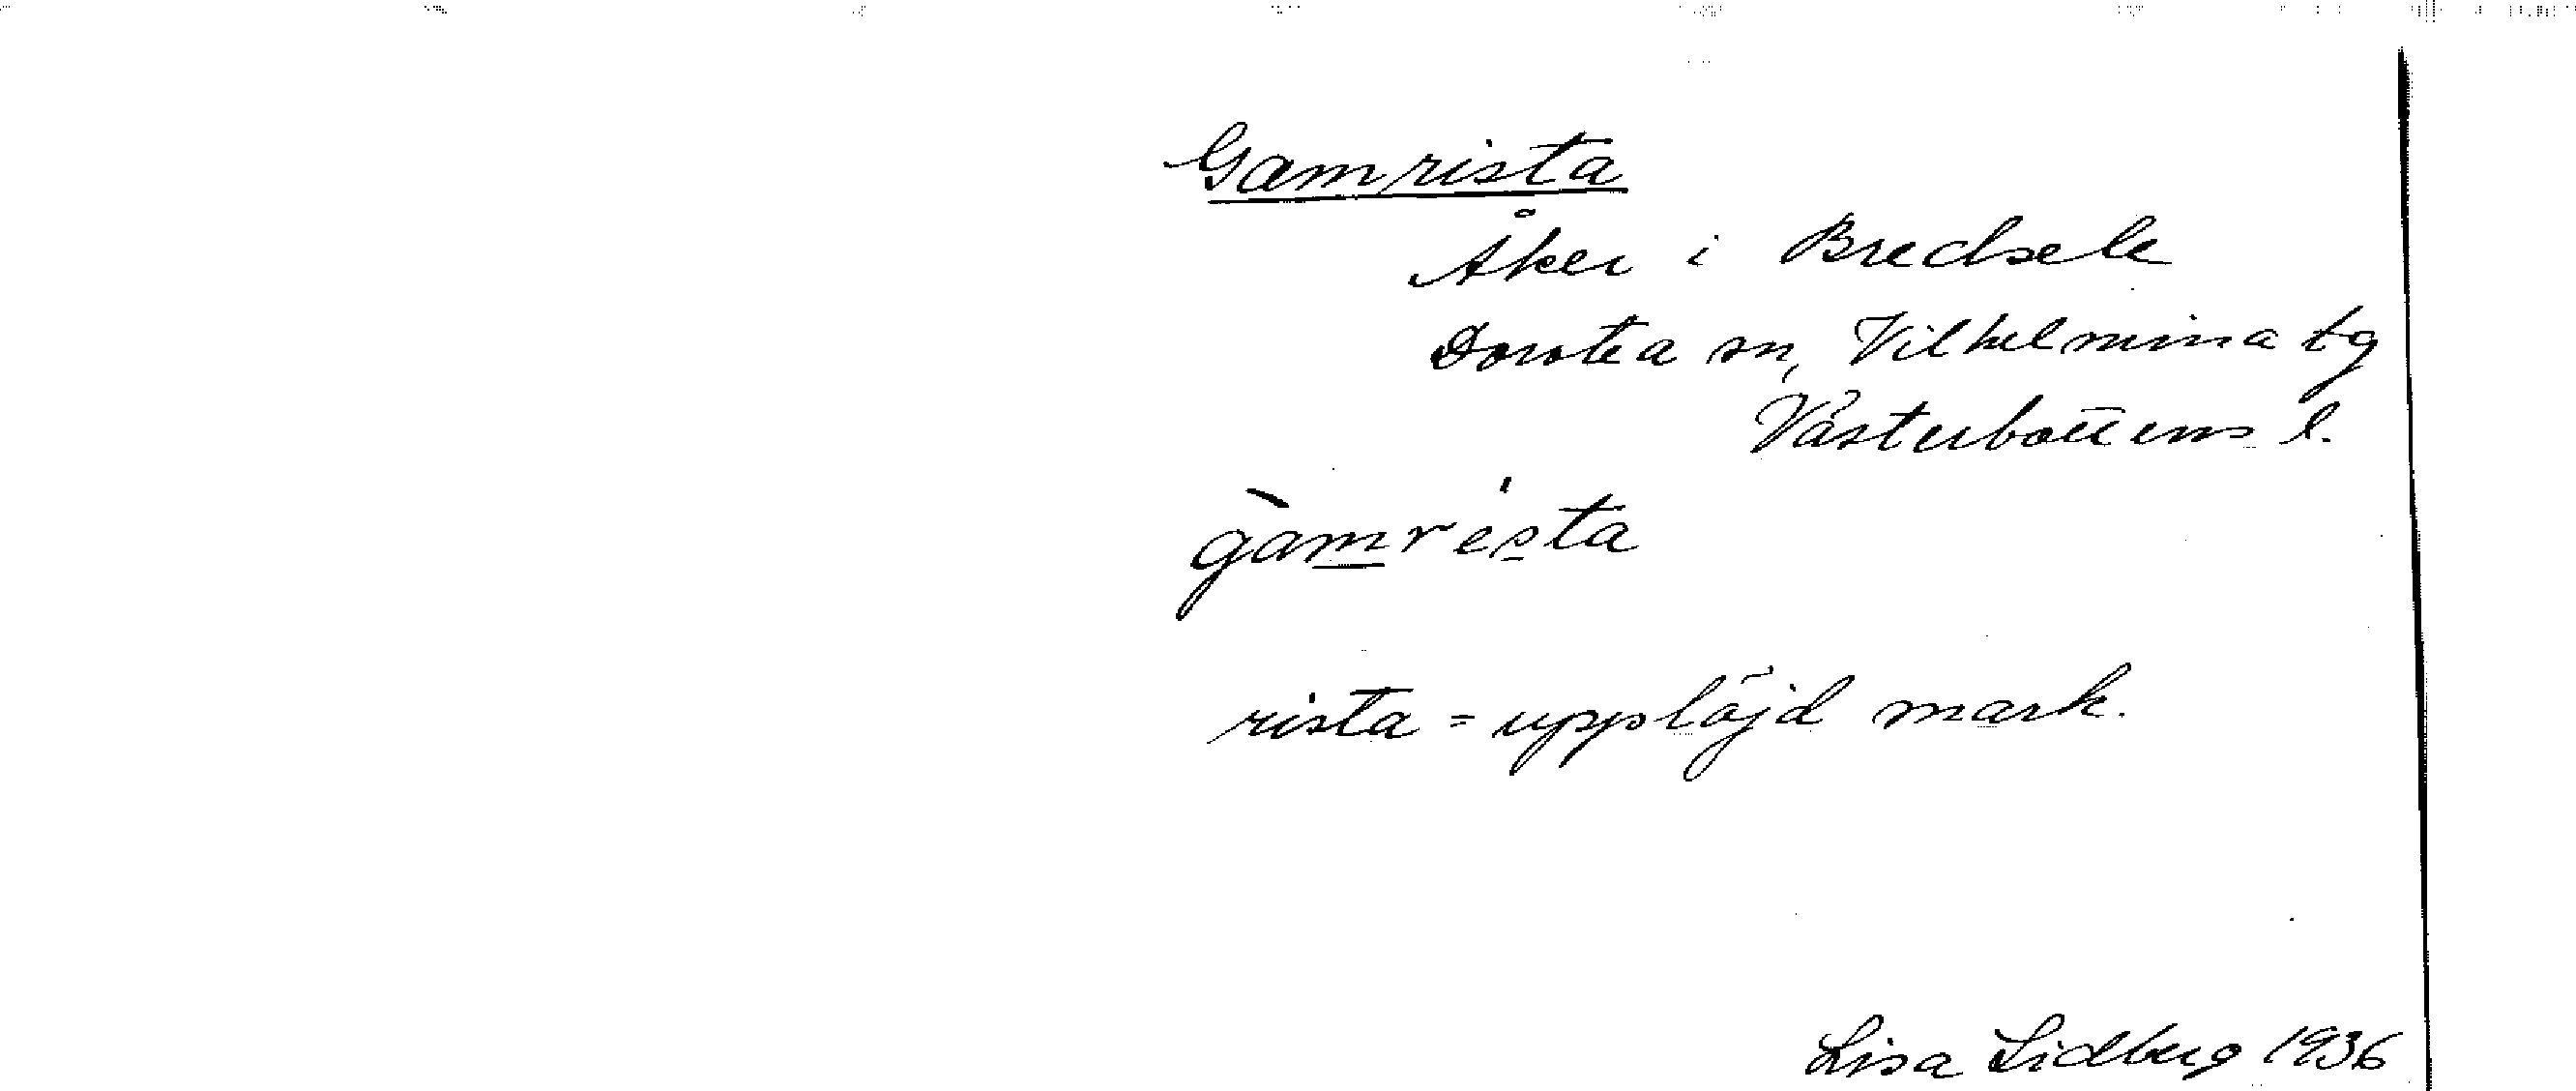 Gamrista
Åker i Bredsele
Dorotea sn, Vilhelmina tg
Västerbottens l.
gàmrésta
rista = upplöjd mark.
Lisa Lidberg 1936